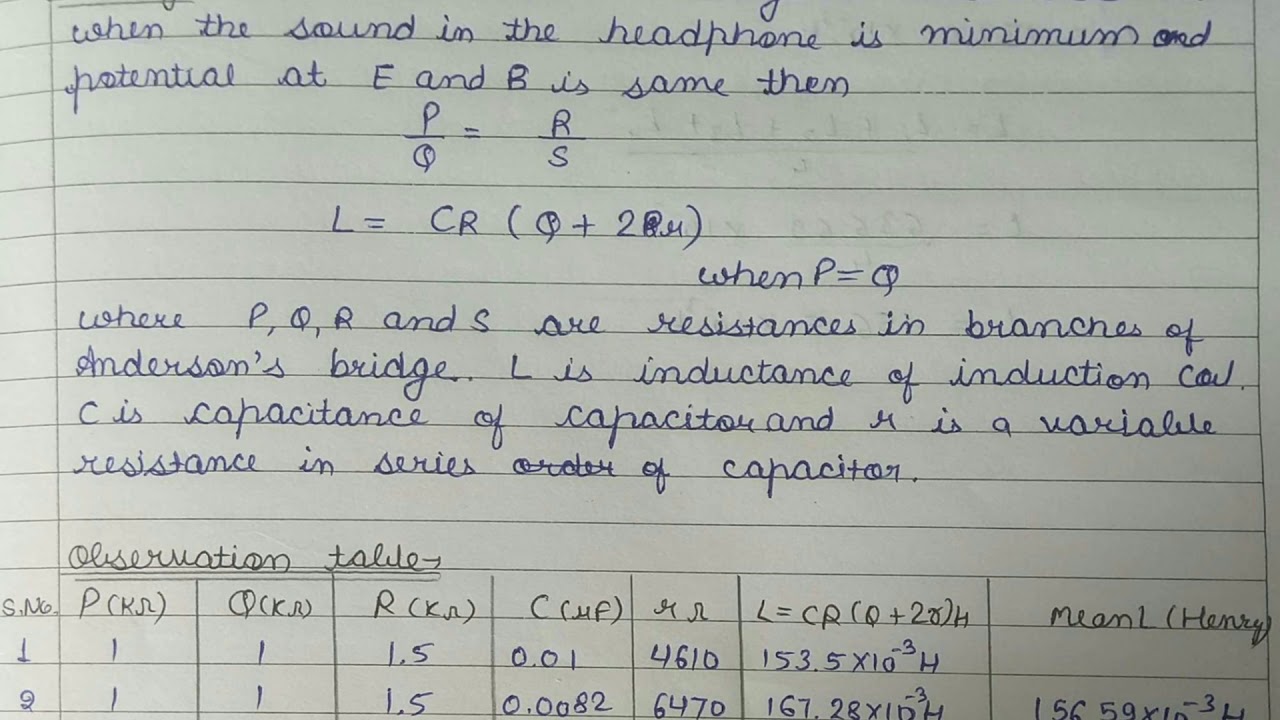 when the sound in the headphone is minimum and
potential at E and B is same then
P/Q = R/S
L = CR (Q + 2r)
when P = Q
where P, Q, R and S are resistances in branches of
Anderson's bridge. L is inductance of induction coil.
C is capacitance of capacitor and r is a variable
resistance in series order of capacitor.
Observation table→
S.No. P(KΩ) Q(KΩ) R(KΩ) C(μF) r Ω L=CR(Q+2r)H Mean L (Henry)
1 1 1 1.5 0.01 4610 153.5×10⁻³H
2 1 1 1.5 0.0082 6470 167.28×10⁻³H 156.59×10⁻³H